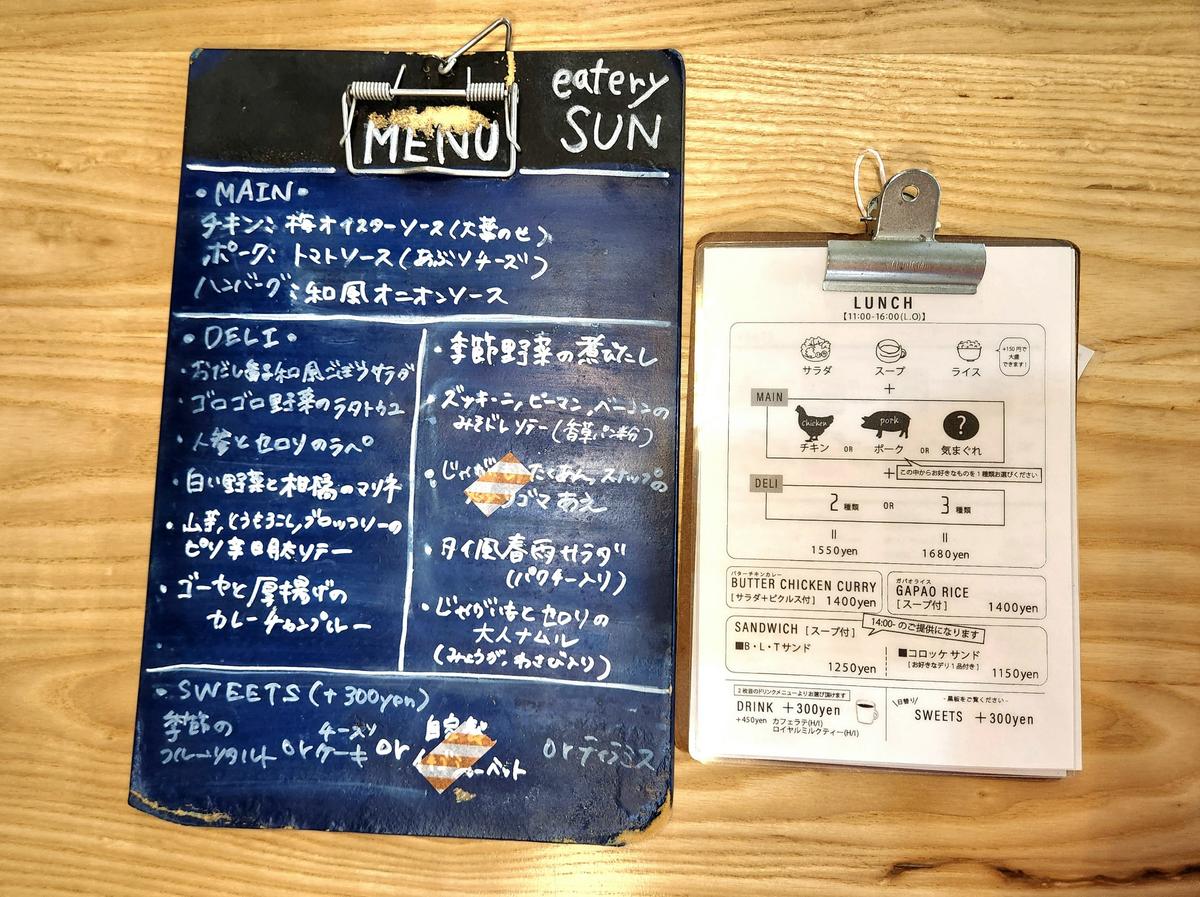 MENU
eatery
SUN
・MAIN・
チキン: 梅オイスターソース(大葉のせ)
ポーク: トマトソース(あぶりチーズ)
ハンバーグ: 和風オニオンソース
・DELI・
・おだし香る和風ごぼうサラダ
・ゴロゴロ野菜のラタトゥユ
・人参とセロリのラペ
・白い野菜と柑橘のマリネ
・山芋,とうもろこし,ブロッコリーの
ピリ辛明太ソテー
・ゴーヤと厚揚げの
カレーチャンプルー
・季節野菜の煮びたし
・ズッキーニ,ピーマン,ベーコンの
みそドレソテー(香草パン粉)
・じゃが
たくあん,スナップの
ゴマあえ
・タイ風春雨サラダ
(パクチー入り)
・じゃがいもとセロリの
大人ナムル
(みょうが,わさび入り)
・SWEETS(+300yen)
季節の
フルーツタルト or チーズケーキ or
自家製
ーベット
or ティラミス
LUNCH
【11:00-16:00(L.O)】
サラダ
スープ
ライス
+150円で
大盛
できます!
+
MAIN
Chicken
pork
?
チキン OR ポーク OR 気まぐれ
+
この中からお好きなものを1種類お選びください
DELI
2種類 OR 3種類
=
=
1550yen
1680yen
バターチキンカレー
BUTTER CHICKEN CURRY
[サラダ+ピクルス付] 1400yen
ガパオライス
GAPAO RICE
[スープ付]
1400yen
SANDWICH [スープ付]
14:00- のご提供になります
■B・L・Tサンド
1250yen
■コロッケサンド
[お好きなデリ1品付き]
1150yen
2枚目のドリンクメニューよりお選び頂けます
DRINK +300yen
+450yen カフェラテ(H/I)
ロイヤルミルクティー(H/I)
日替り
- 黒板をご覧ください -
SWEETS +300yen